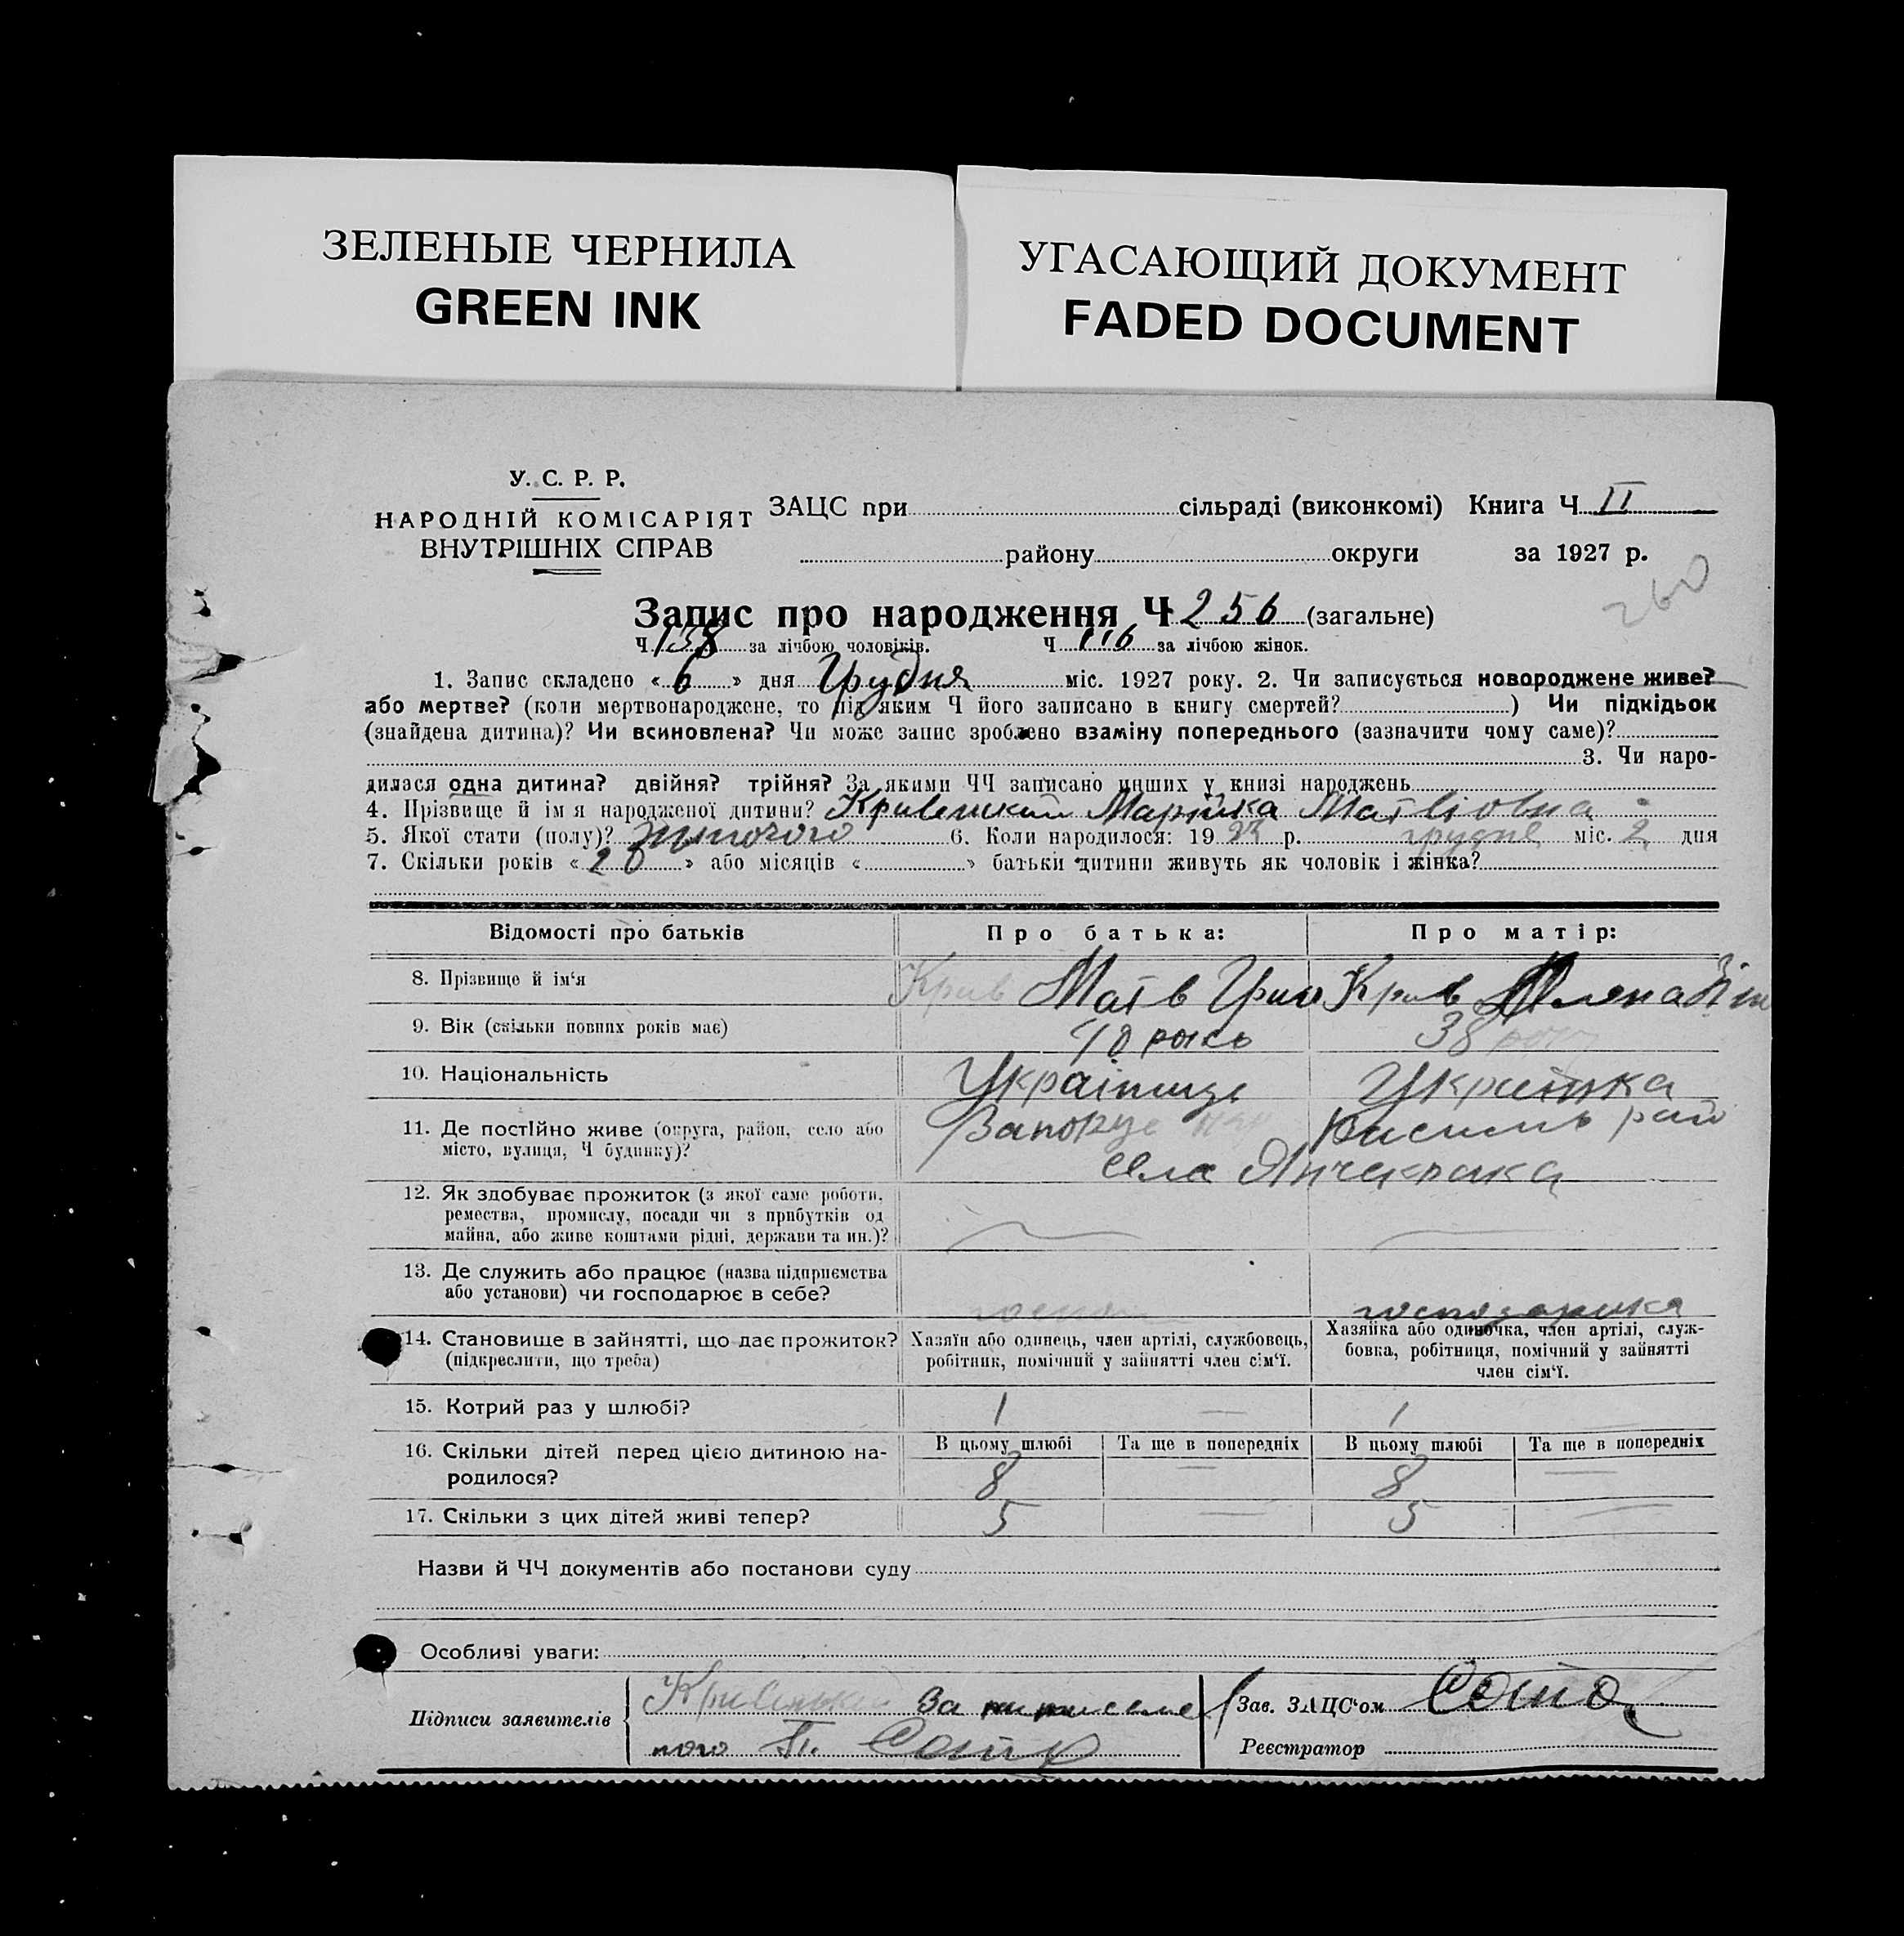 ЗЕЛЕНЫЕ ЧЕРНИЛА
GREEN INK
УГАСАЮЩИЙ ДОКУМЕНТ
FADED DOCUMENT
У. С. Р. Р.
НАРОДНІЙ КОМІСАРІЯТ
ВНУТРІШНІХ СПРАВ
ЗАЦС при сільраді (виконкомі) Книга Ч II
району округи за 1927 р.
260
Запис про народження Ч 256 (загальне)
Ч 138 за лічбою чоловіків. Ч 116 за лічбою жінок.
1. Запис складено « 6 » дня Грудня міс. 1927 року. 2. Чи записується новороджене живе?
або мертве? (коли мертвонароджене, то під яким Ч його записано в книгу смертей? ) Чи підкідьок
(знайдена дитина)? Чи всиновлена? Чи може запис зроблено взаміну попереднього (зазначити чому саме)?
3. Чи наро-
дилася одна дитина? двійня? трійня? За якими ЧЧ записано инших у книзі народжень
4. Прізвище й ім'я народженої дитини? Марійка Матвіовна
5. Якої стати (полу)? жиночого 6. Коли народилося: 19 р. грудня міс. 2 дня
7. Скільки років « 20 » або місяців « » батьки дитини живуть як чоловік і жінка?
Відомості про батьків
Про батька:
Про матір:
8. Прізвище й ім'я
Крив Матв Григ
Крив
9. Вік (скільки повних років має)
38
10. Національність
Українець
Українка
11. Де постійно живе (округа, район, село або
місто, вулиця, Ч будинку)?
села Янчакрака
12. Як здобуває прожиток (з якої саме роботи,
ремества, промислу, посади чи з прибутків од
майна, або живе коштами рідні, держави та ин.)?
13. Де служить або працює (назва підприємства
або установи) чи господарює в себе?
господарика
14. Становище в зайнятті, що дає прожиток?
(підкреслити, що треба)
Хазяїн або одинець, член артілі, службовець,
робітник, помічний у зайнятті член сім'ї.
Хазяйка або одиночка, член артілі, служ-
бовка, робітниця, помічний у зайнятті
член сім'ї.
15. Котрий раз у шлюбі?
1 — 1
16. Скільки дітей перед цією дитиною на-
родилося?
В цьому шлюбі Та ще в попередніх В цьому шлюбі Та ще в попередніх
8 — 8 —
17. Скільки з цих дітей живі тепер?
5 — 5 —
Назви й ЧЧ документів або постанови суду
Особливі уваги:
Підписи заявителів
За
ного
Зав. ЗАЦС'ом
Реєстратор